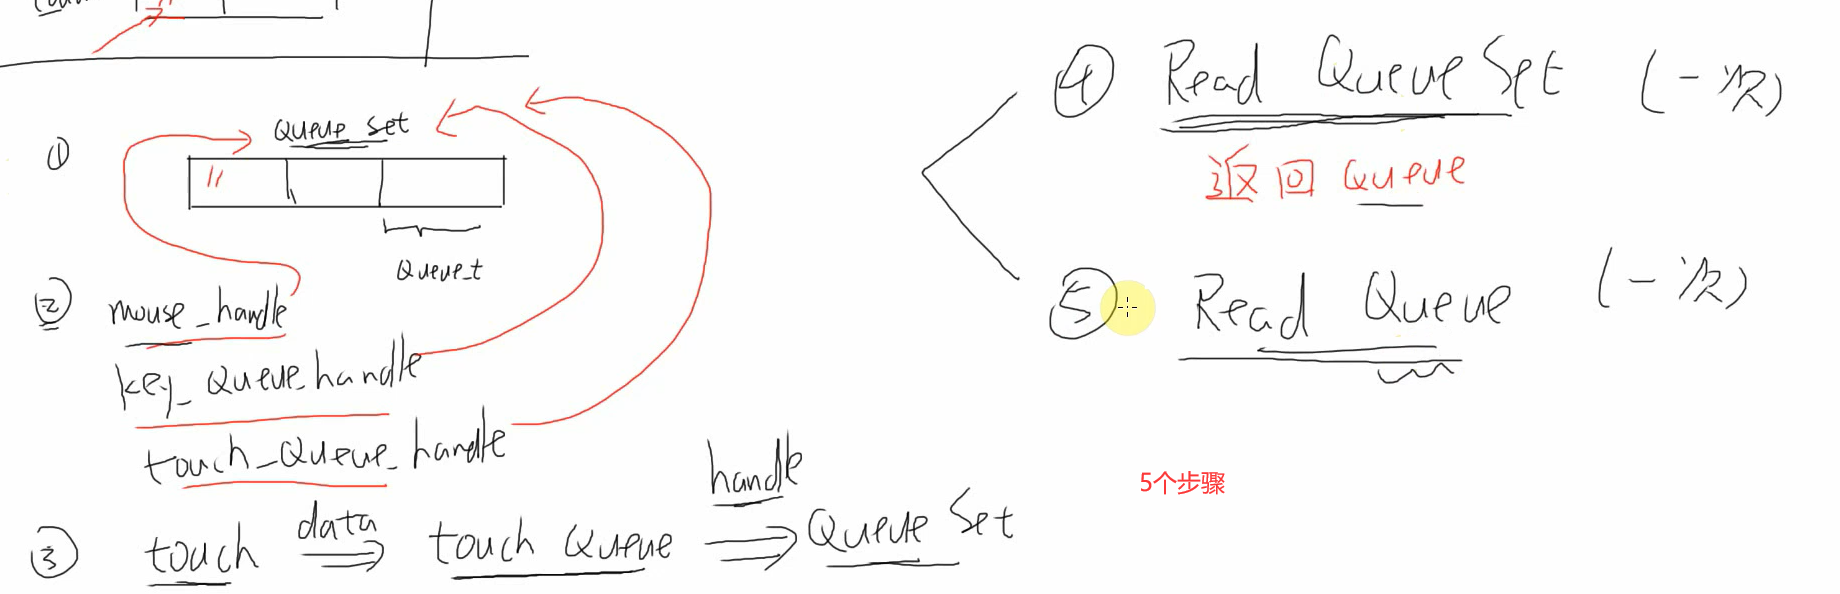 ① Queue_set
Queue_t
② mouse_handle
key_Queue_handle
touch_Queue_handle
③ touch data touch Queue handle Queue Set
④ Read Queue Set (一次)
返回 Queue
⑤ Read Queue (一次)
5个步骤